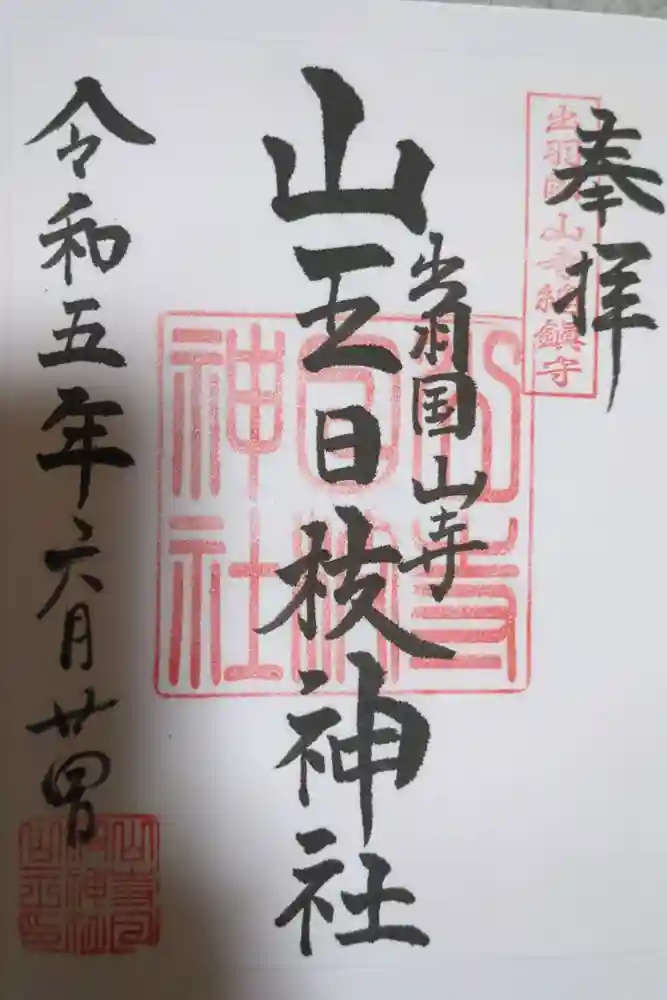 奉拝
出羽國山寺總鎮守
出羽国山寺
山王日枝神社
山寺
日枝
神社
令和五年六月廿四日